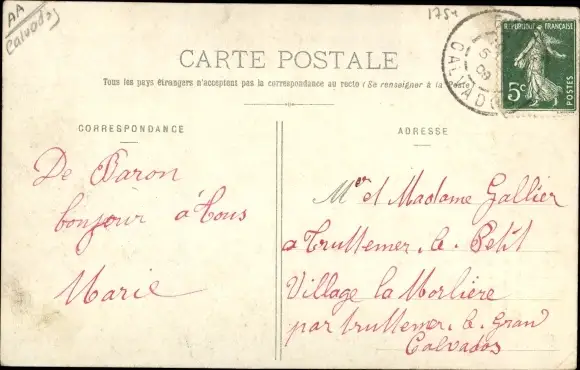 AA
Calvados
1754
CARTE POSTALE
Tous les pays étrangers n'acceptent pas la correspondance au recto (Se renseigner à la Poste)
REPUBLIQUE FRANÇAISE
5c
POSTES
CALVADOS
CORRESPONDANCE
De Baron
bonjour à tous
Marie
ADRESSE
Mer et Madame Gallier
a Truttemer. le. Petit
Village la Morlière
par truttemer. le. Gran
Calvados